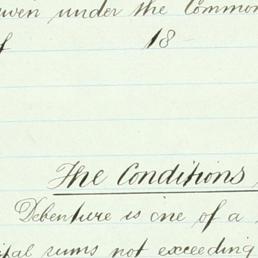 under the Common
18
The Conditions
Debenture is one of a
sums not exceeding